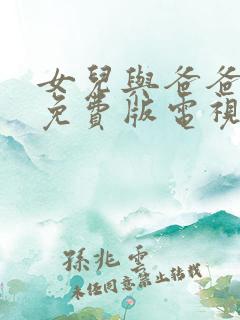 女兒與爸爸
免費版電視
孫兆雲
未任同意禁止转載